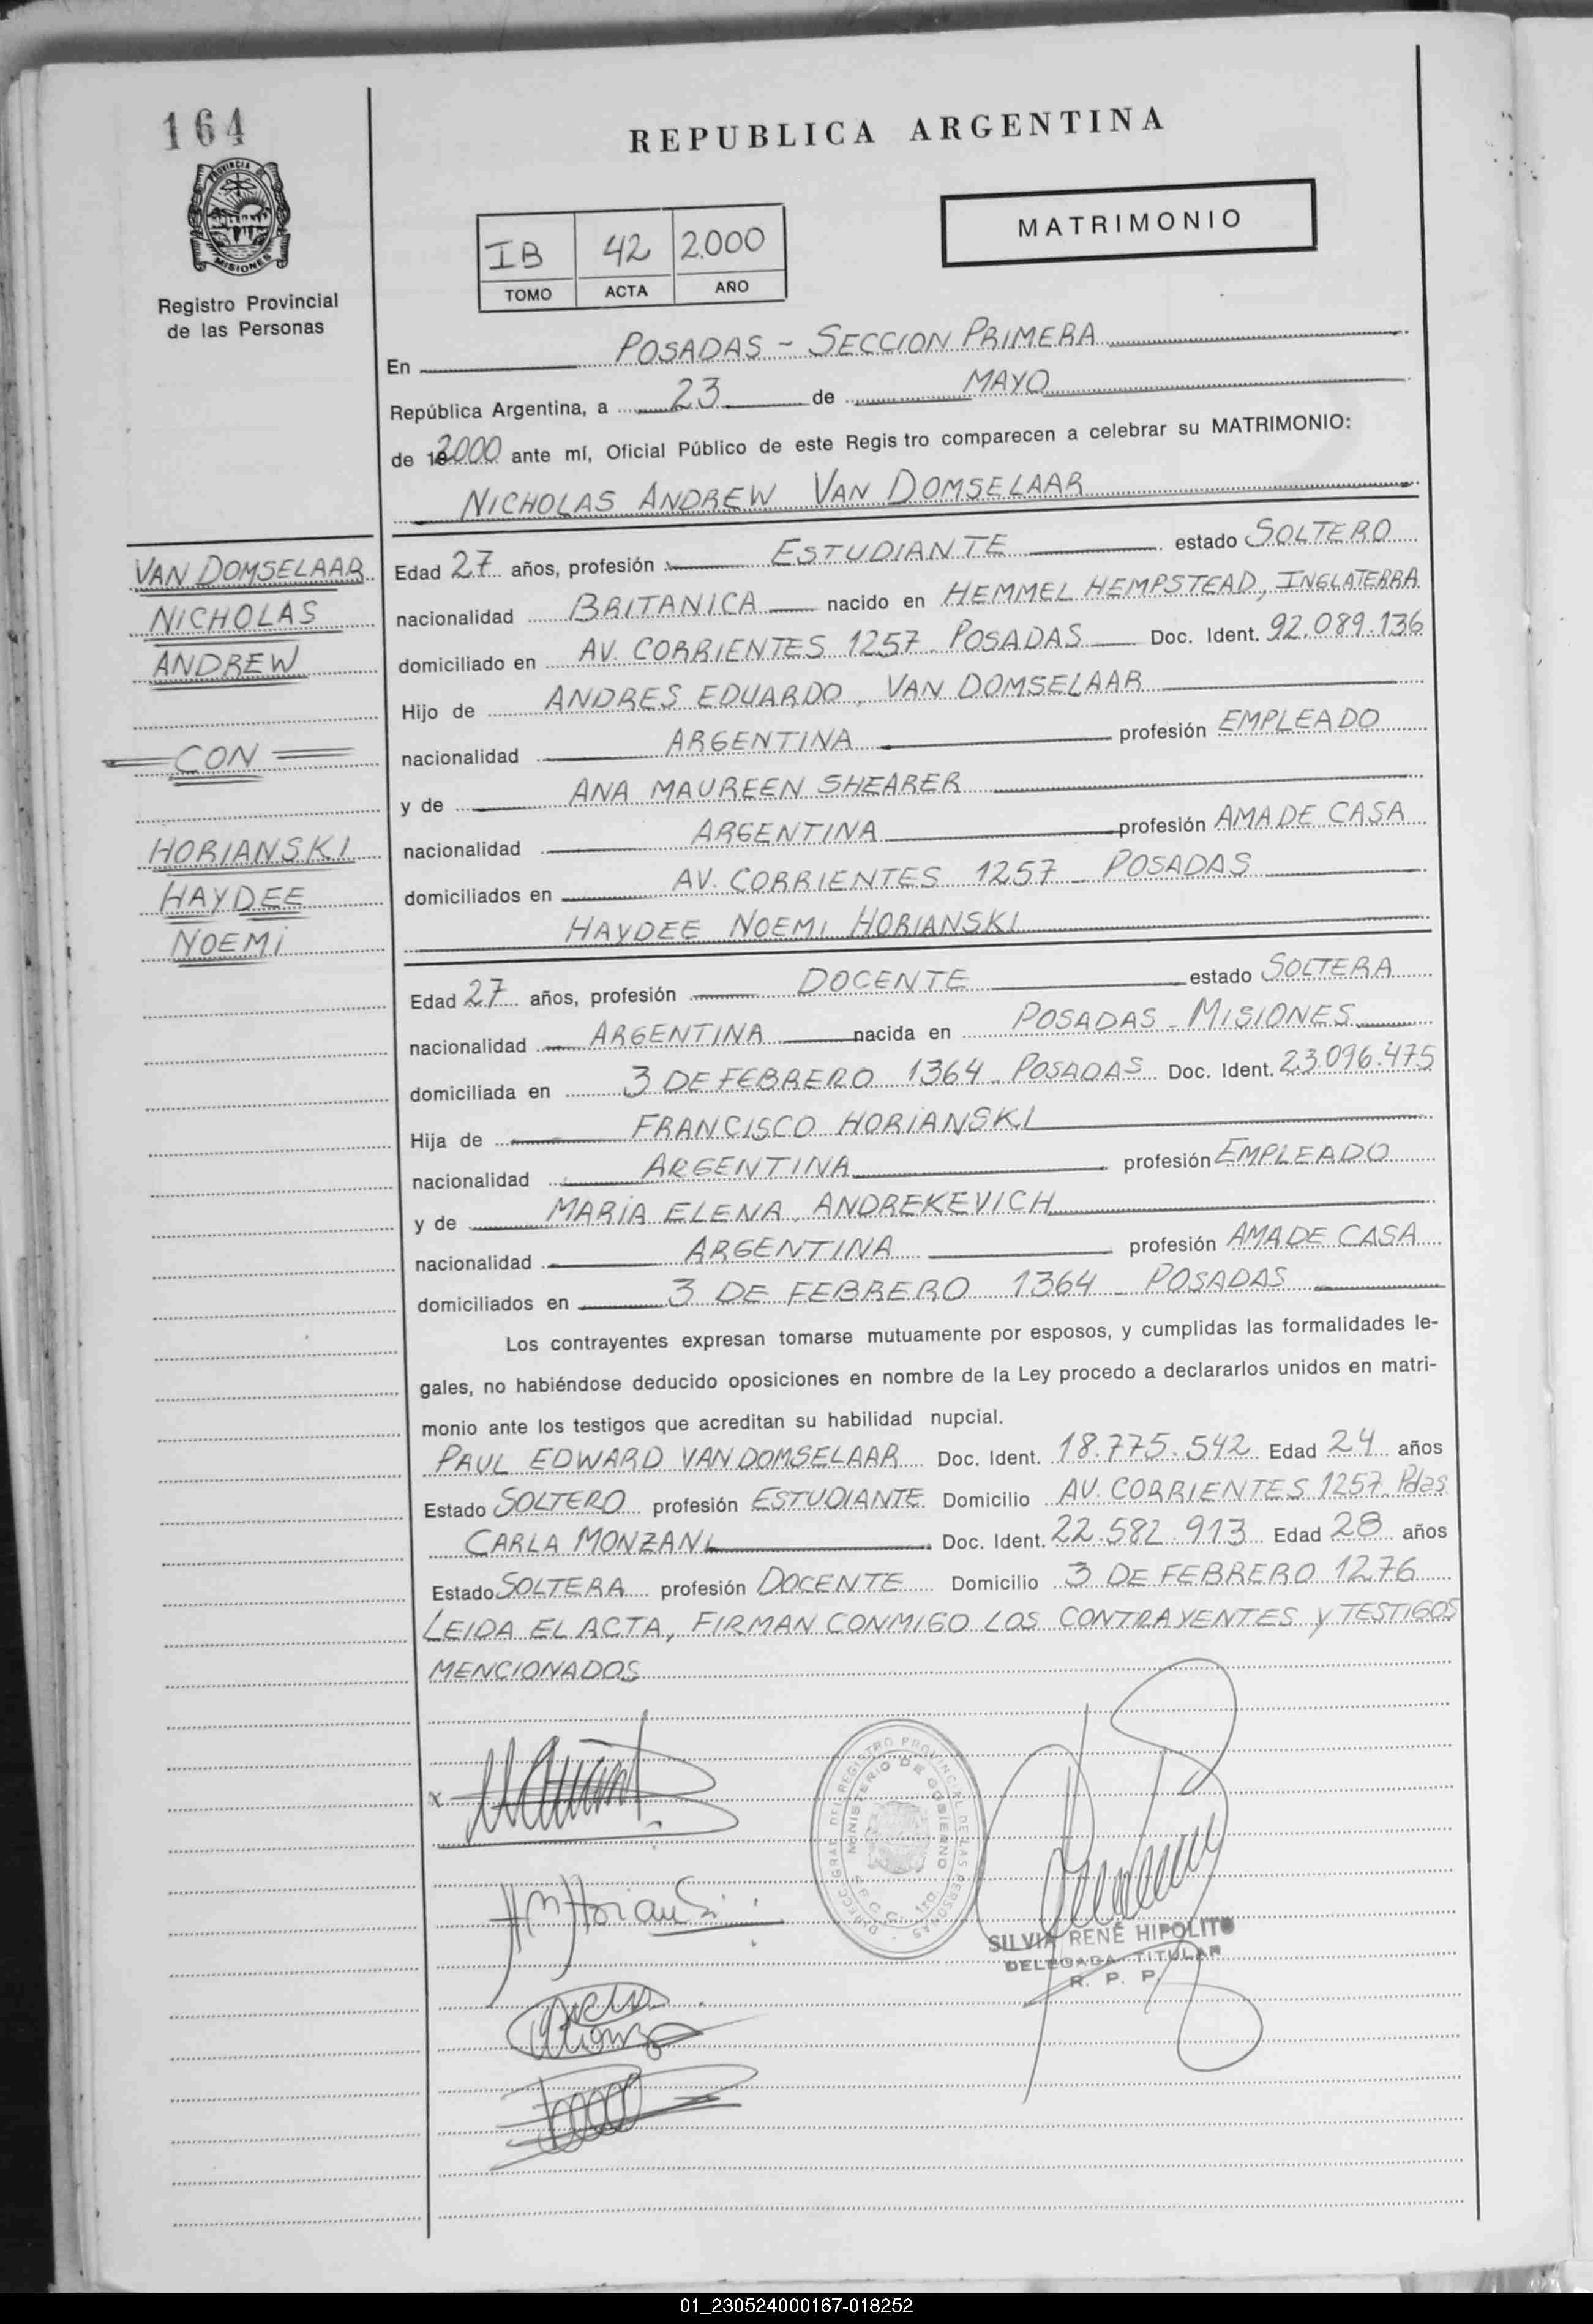 164
REPUBLICA ARGENTINA
PROVINCIA DE
MISIONES
Registro Provincial
de las Personas
IB 42 2.000
TOMO ACTA AÑO
MATRIMONIO
En POSADAS - SECCION PRIMERA
República Argentina, a 23 de MAYO
de 2000 ante mí, Oficial Público de este Regis tro comparecen a celebrar su MATRIMONIO:
NICHOLAS ANDREW VAN DOMSELAAR
VAN DOMSELAAR
NICHOLAS
ANDREW
CON
HORIANSKI
HAYDEE
NOEMI
Edad 27 años, profesión ESTUDIANTE estado SOLTERO
nacionalidad BRITANICA nacido en HEMMEL HEMPSTEAD, INGLATERRA
domiciliado en AV. CORRIENTES 1257 - POSADAS Doc. Ident. 92.089.136
Hijo de ANDRES EDUARDO, VAN DOMSELAAR
nacionalidad ARGENTINA profesión EMPLEADO
y de ANA MAUREEN SHEARER
nacionalidad ARGENTINA profesión AMA DE CASA
domiciliados en AV. CORRIENTES 1257 - POSADAS
HAYDEE NOEMI HORIANSKI
Edad 27 años, profesión DOCENTE estado SOLTERA
nacionalidad ARGENTINA nacida en POSADAS - MISIONES
domiciliada en 3 DE FEBRERO 1364 - POSADAS Doc. Ident. 23.096.475
Hija de FRANCISCO HORIANSKI
nacionalidad ARGENTINA profesión EMPLEADO
y de MARIA ELENA, ANDREKEVICH
nacionalidad ARGENTINA profesión AMA DE CASA
domiciliados en 3 DE FEBRERO 1364 - POSADAS
Los contrayentes expresan tomarse mutuamente por esposos, y cumplidas las formalidades le-
gales, no habiéndose deducido oposiciones en nombre de la Ley procedo a declararlos unidos en matri-
monio ante los testigos que acreditan su habilidad nupcial.
PAUL EDWARD VAN DOMSELAAR Doc. Ident. 18.775.542 Edad 24 años
Estado SOLTERO profesión ESTUDIANTE Domicilio AV. CORRIENTES 1257 Pdas
CARLA MONZANI Doc. Ident. 22.582.913 Edad 28 años
Estado SOLTERA profesión DOCENTE Domicilio 3 DE FEBRERO 1276
LEIDA EL ACTA, FIRMAN CONMIGO LOS CONTRAYENTES Y TESTIGOS
MENCIONADOS
DIRECC. GRAL. DEL REGISTRO PROVINCIAL DE LAS PERSONAS
MINISTERIO DE GOBIERNO
SILVIA RENÉ HIPOLITO
DELEGADA TITULAR
R. P. P.
01_230524000167-018252